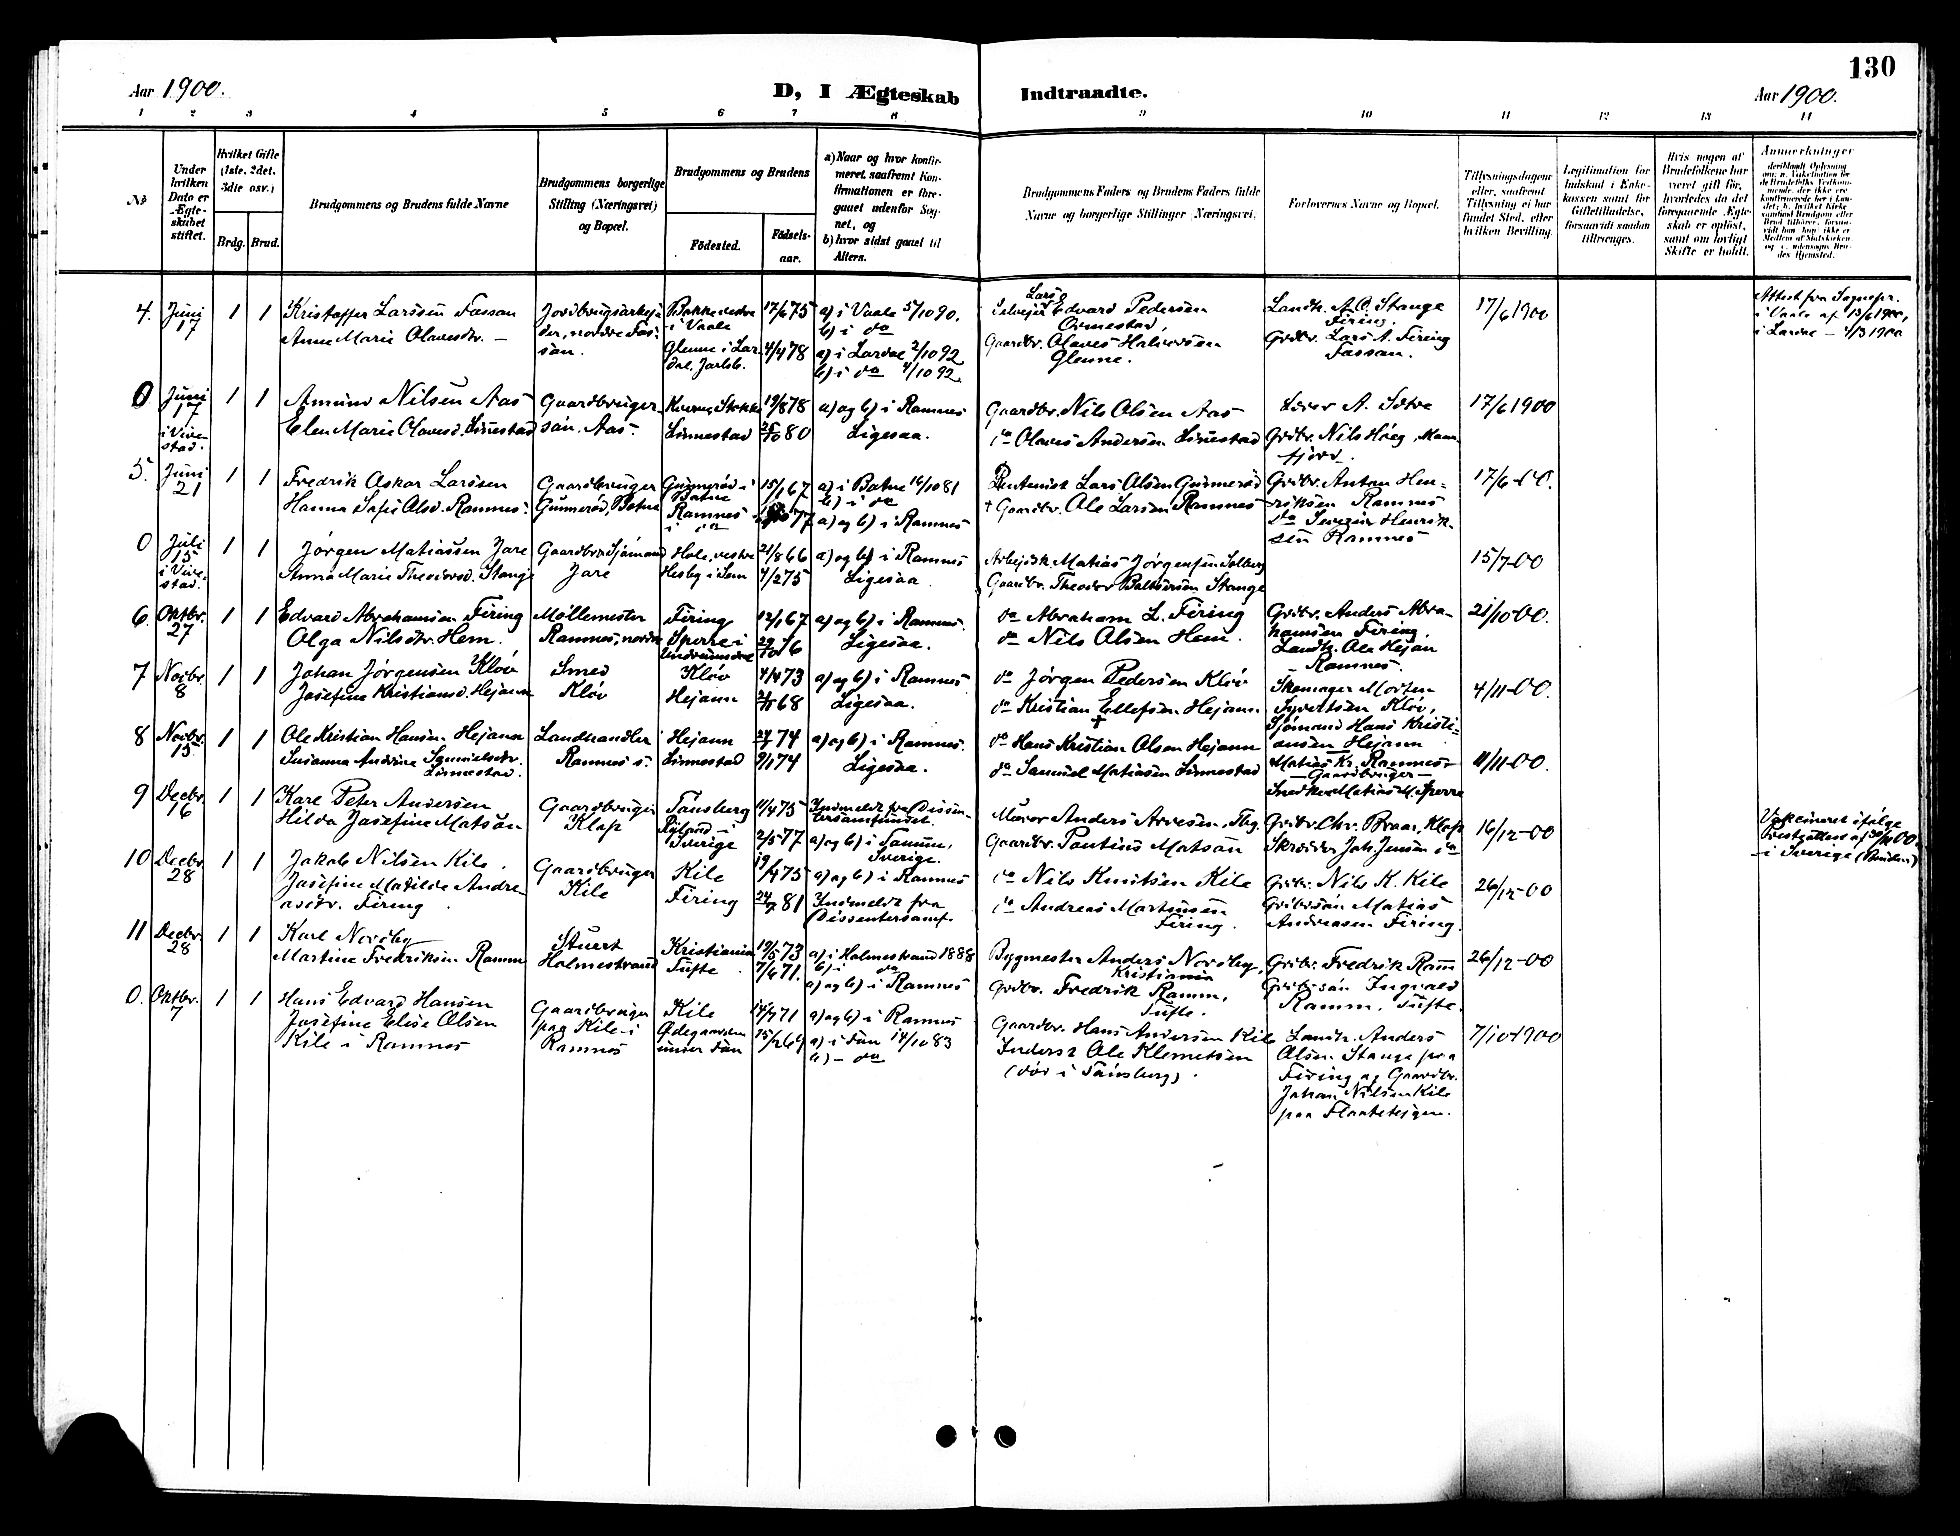 130
Aar 1900.
D, I Ægteskab Indtraadte.
Aar 1900.
1 2 3 4 5 6 7 8 9 10 11 12 13 14
No
Under hvilken Dato er Ægteskabet stiftet.
Hvilket Gifte (1ste, 2det, 3die osv.)
Brdg. Brud.
Brudgommens og Brudens fulde Navne
Brudgommens borgerlige Stilling (Næringsvei) og Bopæl.
Brudgommens og Brudens
Födested.
Födselsaar.
a) Naar og hvor konfirmeret, saafremt Konfirmationen er foregaaet udenfor Sognet, og
b) hvor sidst gaaet til Alters.
Brudgommens Faders og Brudens Faders fulde Navne og borgerlige Stillinger Næringsvei.
Forlovernes Navne og Bopæl.
Tillysningsdagene eller, saafremt Tillysning ei har fundet Sted, efter hvilken Bevilling.
Legitimation for Indskud i Enkekassen samt for Giftetilladelse, forsaavidt saadan tiltrænges.
Hvis nogen af Brudefolkene har været gift før, hvorledes da det foregaaende Ægteskab er opløst, samt om lovligt Skifte er holdt.
Anmærkninger
4. Juni 17 1 1
Kristoffer Larssen Fossan
Anne Marie Olavesdr. —
Jordbrugsarbeider, nordre Fossan.
Bakke vestre i Vaale 17/6 75
Glenne i Lardal, Jarlsb. 4/4 78
a) i Vaale 5/10 90.
b) i do
a) i Lardal 2/10 92
b) i do 4/10 92
Selveier Lars Edvard Pedersen Ormestad,
Gaardbr. Olaves Halvorsen Glenne.
Landh. A. O. Stange Firing.
Grdbr. Lars A. Firing Fossan.
17/6 1900
Attest fra Sognepr. i Vaale af 13/6 1900,
i Lardal — 4/3 1900
0 Juni 17 i Vivestad. 1 1
Amund Nilsen Aas
Elen Marie Olavesd. Linnestad
Gaardbrugersøn. Aas.
Kverne, Stokke 19/8 78
Linnestad 80
a) og b) i Ramnes
Ligesaa.
Gaardbr. Nils Olsen Aas
do Olaves Andersen Linnestad
Lærer A. Sætre
Grdbr. Nils Høeg,
17/6 1900
5. Juni 21 1 1
Fredrik Oskar Larssen
Hanna Sofie Olsd. Ramnes.
Gaardbruger
Gunnerød, Botne
Gunnerød i Botne 15/1 67
Ramnes i do 77
a) i Botne 16/10 81
b) i do
a) og b) i Ramnes
Rentenist Lars Olsen Gunnerød
+ Gaardbr. Ole Larsen Ramnes
Grdbr. Anton Henriksen Ramnes
do Severin Henriksen Ramnes
17/6-00.
0 Juli 15 i Vivestad. 1 1
Jørgen Matiassen Jare
Anna Marie Theodorsd. Stange
Gaardbr. Sjømand
Jare
Hole, vestre 21/8 66
Hesby i Sem 4/2 75
a) og b) i Ramnes
Ligesaa.
Arbejdsk. Matias Jørgensen Solberg
Gaardbr. Theodor Baltsersen Stange
15/7-00
6. Oktbr. 27 1 1
Edvard Abrahamsen Firing
Olga Nilsdtr. Hem.
Møllemester
Ramnes, nordre
Firing 12/1 67
Sperre i Undrumsdal 76
a) og b) i Ramnes.
Ligesaa.
do Abraham L. Firing
do Nils Olsen Hem.
Grdbr. Anders Abrahamsen Firing.
Landh. Ole Hejan Ramnes.
21/10-00.
7 Novbr. 8 1 1
Johan Jørgensen Kløv
Josefine Kristiansd. Hejann
Smed
Kløv
Kløv 4/4 73
Hejann 68
a) og b) i Ramnes
Ligesaa.
do Jørgen Pedersen Kløv
do Kristian Ellefsen Hejann
+
Skomager Morten Syvertsen Kløv,
Sjømand Hans Kristiansen Hejann
4/11-00.
8 Novbr. 15 1 1
Ole Kristian Hansen Hejann
Susanna Andrine Samuelsdtr. Linnestad.
Landhandler
Ramnes s.
Hejann 74
Linnestad 9/1 74
a) og b) i Ramnes.
Ligesaa.
do Hans Kristian Olsen Hejann
do Samuel Matiasen Linnestad
Matias Kr. Ramnes
— Gaardbruger —
Snedker Matias M. Sperre
11/11-00.
9 Decbr. 16 1 1
Karl Peter Andersen
Hilda Josefine Matson
Gaardbruger
Klop
Tønsberg 11/4 75
Sverige 2/5 77
Indmeldt fra Dissentersamfundet.
a) og b) i Tanum, Sverige.
Murer Anders Arvesen, Tbg.
Gaardbr. Pontius Matson
Grdbr. Chr. Braar, Klop
Skrædder Joh. Jensen do
16/12-00
Vakcineret ifølge Prestattest
i Sverige (Bruden)
10 Decbr. 28 1 1
Jakob Nilsen Kile.
Josefine Matilde Andreasdr. Firing.
Gaardbruger
Kile
Kile 19/4 75
Firing 81
a) og b) i Ramnes
Indmeldt fra Dissentersamf.
do Nils Knutsen Kile
do Andreas Martinsen Firing.
Grdbr. Nils K. Kile
Grdbrsøn Matias Andreasen Firing.
26/12-00
11 Decbr. 28 1 1
Karl Nordby
Martine Fredriksen Ramm
Stuert
Holmestrand
Kristiania 19/5 73
Tufte 7/6 71.
a) i Holmestrand 1888
b) i do
a) og b) i Ramnes
Bygmester Anders Nordby, Kristiania
Grdbr. Fredrik Ramm, Tufte.
Grdbr. Fredrik Ramm
Grdbrsøn Ingvald Ramm, Tufte.
26/12-00
0. Oktbr. 7 1 1
Hans Edvard Hansen
Josefine Elise Olsen
Kile i Ramnes
Gaardbruger paa Kile i Ramnes
Kile 14/7 71
Ødegaarden under Fon 15/2 69
a) og b) i Ramnes
a) i Fon 14/10 83
b) — do
Gaardbr. Hans Andersen Kile
Inderst Ole Klemetsen
(død i Tønsberg).
Landh. Anders Olsen Stange paa Firing og Gaardbr.
Johan Nilsen Kile
7/10 1900